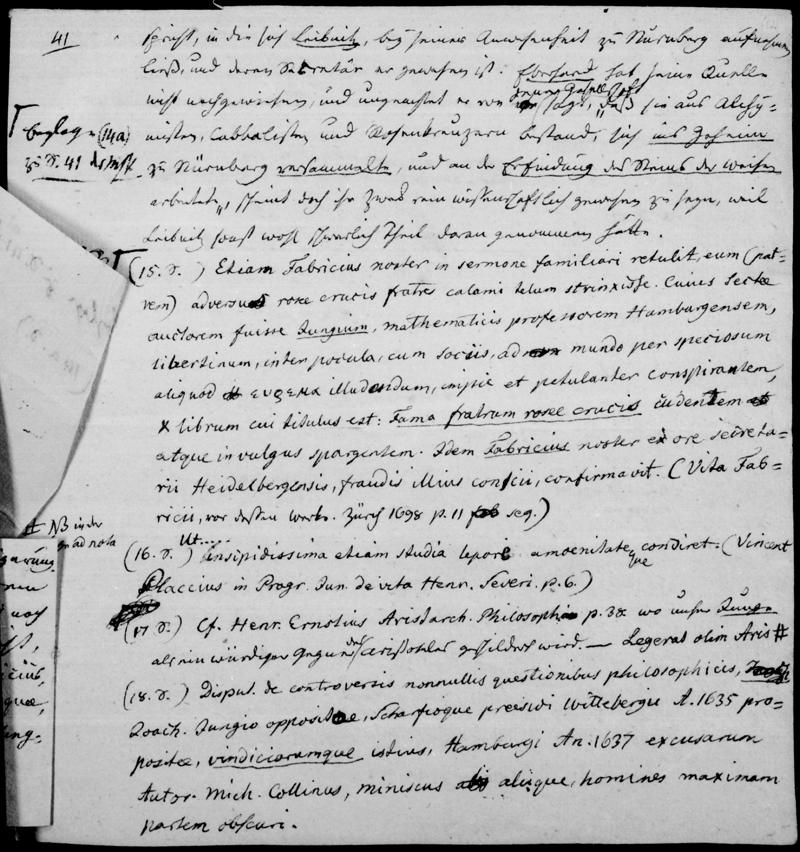 41
spricht, in die sich Leibnitz, bey seiner Anwesenheit zu Nürnberg aufnehmen
ließ, und deren Secretär er gewesen ist. Eberhard hat seine Quelle
nicht nachgewiesen, und ungeachtet er von jener Gesellschaft sagt, "daß sie aus Alchy-
misten, Cabbalisten und Rosenkreuzern bestand, sich ins Geheim
zu Nürnberg versammelte, und an der Erfindung des Steins der Weisen
arbeitete", scheint doch ihr Zweck rein wissenschaftlich gewesen zu seyn, weil
Leibnitz sonst wohl schwerlich Theil daran genommen hätte.
Beylage (14a)
zu S. 41 des Mss
(15. S. ) Etiam Fabricius noster in sermone familiari retulit, eum (pat-
rem) adversus roseae crucis fratres calami telum strinxisse. Cuius sectae
auctorem fuisse Jungium, mathematicis professorem Hamburgensem,
libertinum, inter pocula, cum sociis, ad mundo per speciosum
aliquod ευρεμα illudendum, inprie et petulanter conspirantem,
& librum cui titulus est: Fama fratrum roseae crucis cudentem
atque in vulgus spargentem. Idem Fabricius noster ex ore secreta-
rii Heidelbergensis, fraudis illius conscii, confirmavit. (Vita Fab-
ricii, vor dessen Werke. Zürch 1698 p. 11 seq.)
NB in der
ad nota
(16. S. ) Ut..... insipidissima etiam studia lepore amoenitateque condiret. (Vincent
Placcius in Progr. Fun. de vita Henr. Severi. p. 6.)
(17 S. ) Cf. Henr. Ernstius Aristarch. Philosoph p. 38 wo unser Junge
als ein würdiger Gegner des Aristoteles geschildert wird. — Legerat olim Aris
(18. S. ) Disput. de controversis nonnullis quaestionibus philosophicis,
Joach. Jungio oppositae, Scharfioque praesidi Wittebergae A. 1635 pro-
positae, vindiciarumque istius, Hamburgi An. 1637 excusarum
Autor. Mich. Collinus, miniscus aliique, homines maximam
partem obscuri.